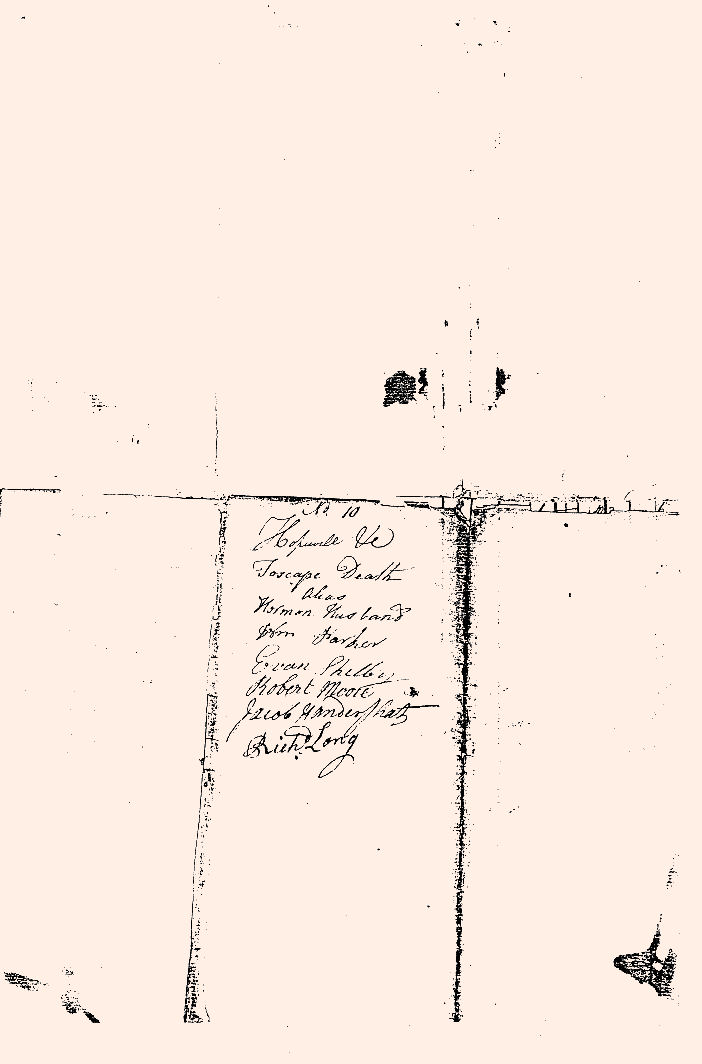 No. 10
Hopewell Ve
Toscape Death
alias
Hermon Husband
Wm Parker
Evan Shelby
Robert Moore
Jacob
Richd. Long